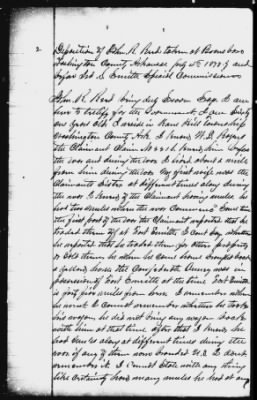 2
Deposition of John R. Reed taken at Boonsboro
Washington County Arkansas July 1878 &
before Jno S. Smith Special Commissioner

John R. Reed being duly sworn says I am
here to testify for the Government. I am Sixty
years old. I reside in Cane Hill township
Washington County Ark. I know W. D. Rogers
the Claimant Claim No. I knew him before
the war and during the war. I lived about a mile
from him during the war. My first wife was the
Claimants Sister at different times along during
the war I knew of the Claimant having mules he
had two mules when the war Commenced. Some time
the first part of the war the Claimant reported that he
traded them off at Fort Smith I cant say whether
he reported that he traded them for other property
or sold them he when he came home brought back
a horse the Confederate Army was in
possession of Fort Smith at the time Fort Smith
is forty five miles from here. I remember when
he went I cannot remember whether he took
his wagon he did not bring any wagon back
with him at that time after that I knew he
had mules along at different times during the
war if any of them were branded U.S. I dont
remember it. I cannot State with any thing
like certainty how many mules he had at any